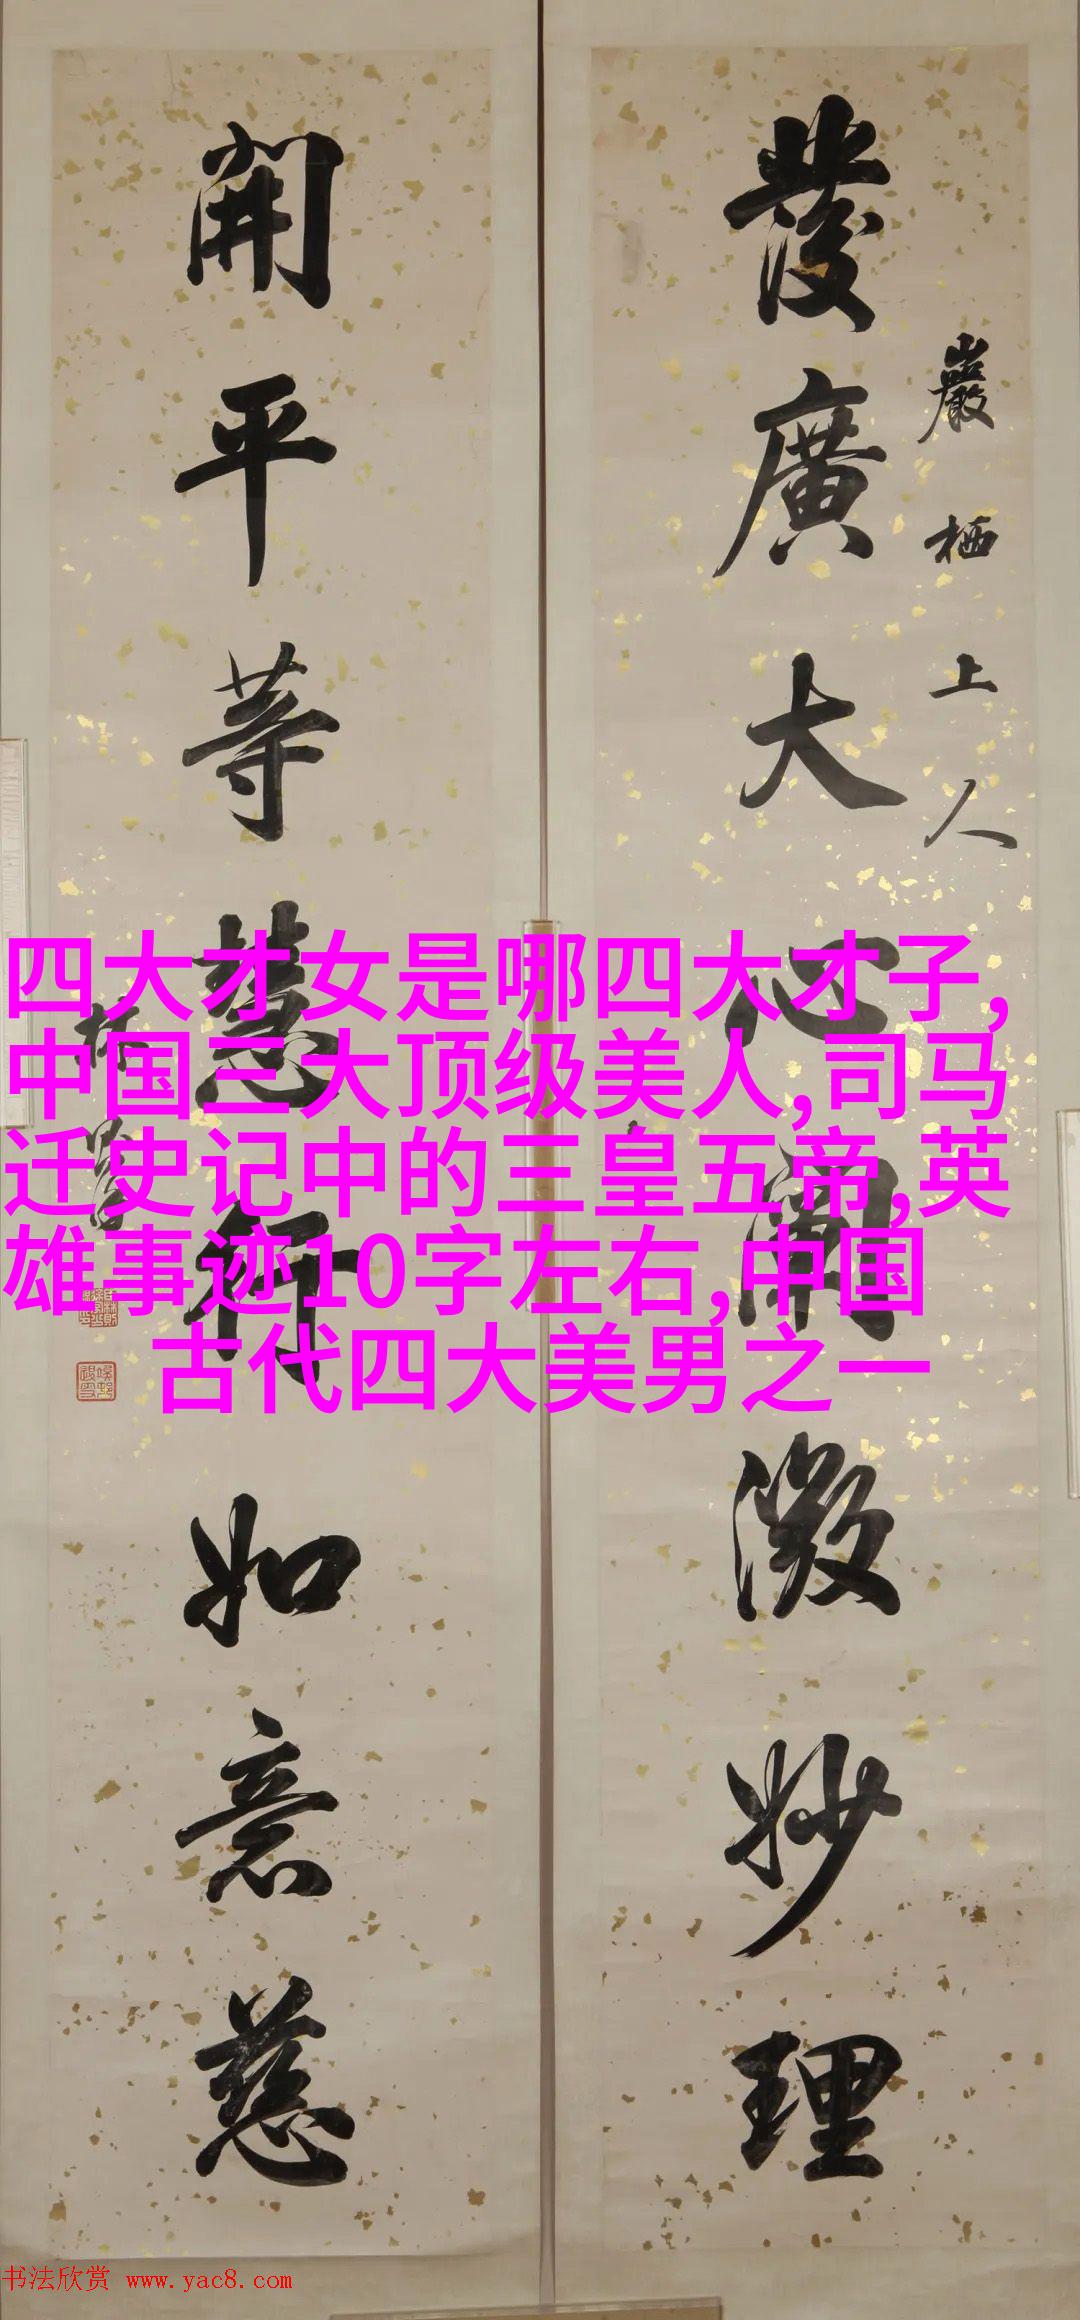 巖栖上人
發廣大心闡微妙理
開平等慧行如意慈
四大才女是哪四大才子,
中国三大顶级美人,司马
迁史记中的三皇五帝,英
雄事迹10字左右,中国
古代四大美男之一
书法欣赏 www.yac8.com